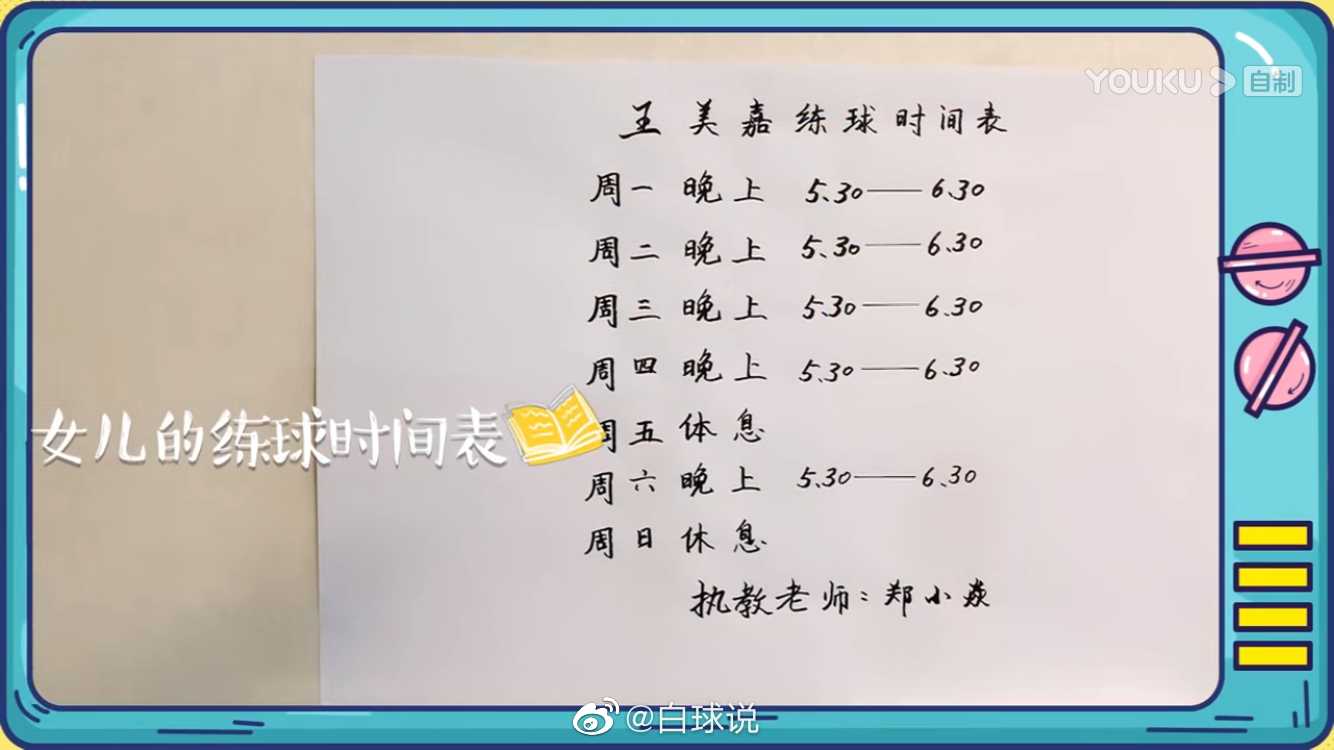 YOUKU 自制
王美嘉练球时间表
周一晚上 5.30——6.30
周二晚上 5.30——6.30
周三晚上 5.30——6.30
周四晚上 5.30——6.30
女儿的练球时间表
周五休息
周六晚上 5.30——6.30
周日休息
执教老师：郑小焱
@白球说